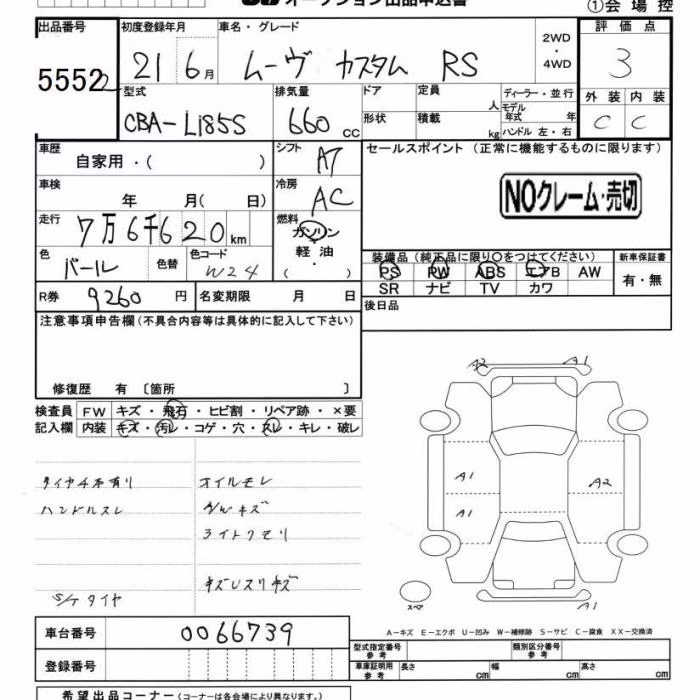 オークション出品申込書
①会場控
出品番号 初度登録年月 車名・グレード 2WD・4WD 評価点
5552 21 6月 ムーヴ カスタム RS 3
型式 排気量 ドア 定員 人 ディーラー・並行 外装 内装
CBA-L185S 660cc 形状 積載 kg モデル年式 年 C C
ハンドル 左・右
車歴 シフト セールスポイント (正常に機能するものに限ります)
自家用・( ) A7
NOクレーム・売切
車検 年 月( 日) 冷房 AC
走行 7万6千620km 燃料 ガソリン
軽油
・( )
色 パール 色替 色コード W24
装備品 (純正品に限り○をつけてください) 新車保証書
PS PW ABS エアB AW 有・無
SR ナビ TV カワ
R券 9260円 名変期限 月 日
後日品
注意事項申告欄(不具合内容等は具体的に記入して下さい)
修復歴 有 〔箇所 〕
検査員 FW キズ・飛石・ヒビ割・リペア跡・×要
記入欄 内装 キズ・汚レ・コゲ・穴・スレ・キレ・破レ
A2 A1
タイヤ4本有り オイルモレ
A1 A2
ハンドルスレ
A1
ライトクモリ
キズUスリキズ
S/Tタイヤ
スペア
A1
A-キズ E-エクボ U-凹み W-補修跡 S-サビ C-腐食 XX-交換済
車台番号 0066739
型式指定番号 参考 類別区分番号 参考
登録番号
車庫証明用 参考 長さ cm 幅 cm 高さ cm
希望出品コーナー(コーナーは各会場により異なります。)